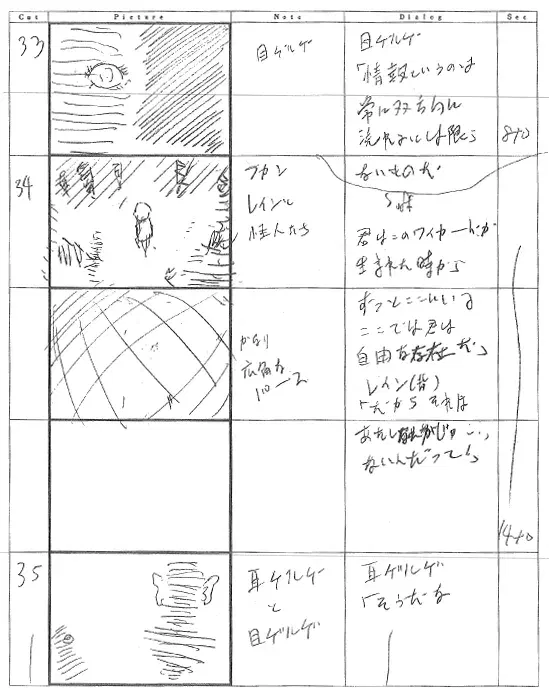 Cut Picture Note Dialog Sec
33
目ゲルゲ
目ゲルゲ
「情報というのは
常に双方向に
流れるとは限ら
ないものだ
8+0
34
フカン
レインと
住人たち
君はこのワイヤードが
生まれた時から
ずっとここにいる
ここでは君は
自由な存在だ」
かなり
広角な
レイン(背)
「だからそれは
あたしなんかじゃ…
ないんだってb
14+0
35
耳ゲルゲ
と
目ゲルゲ
耳ゲルゲ
「そうだな